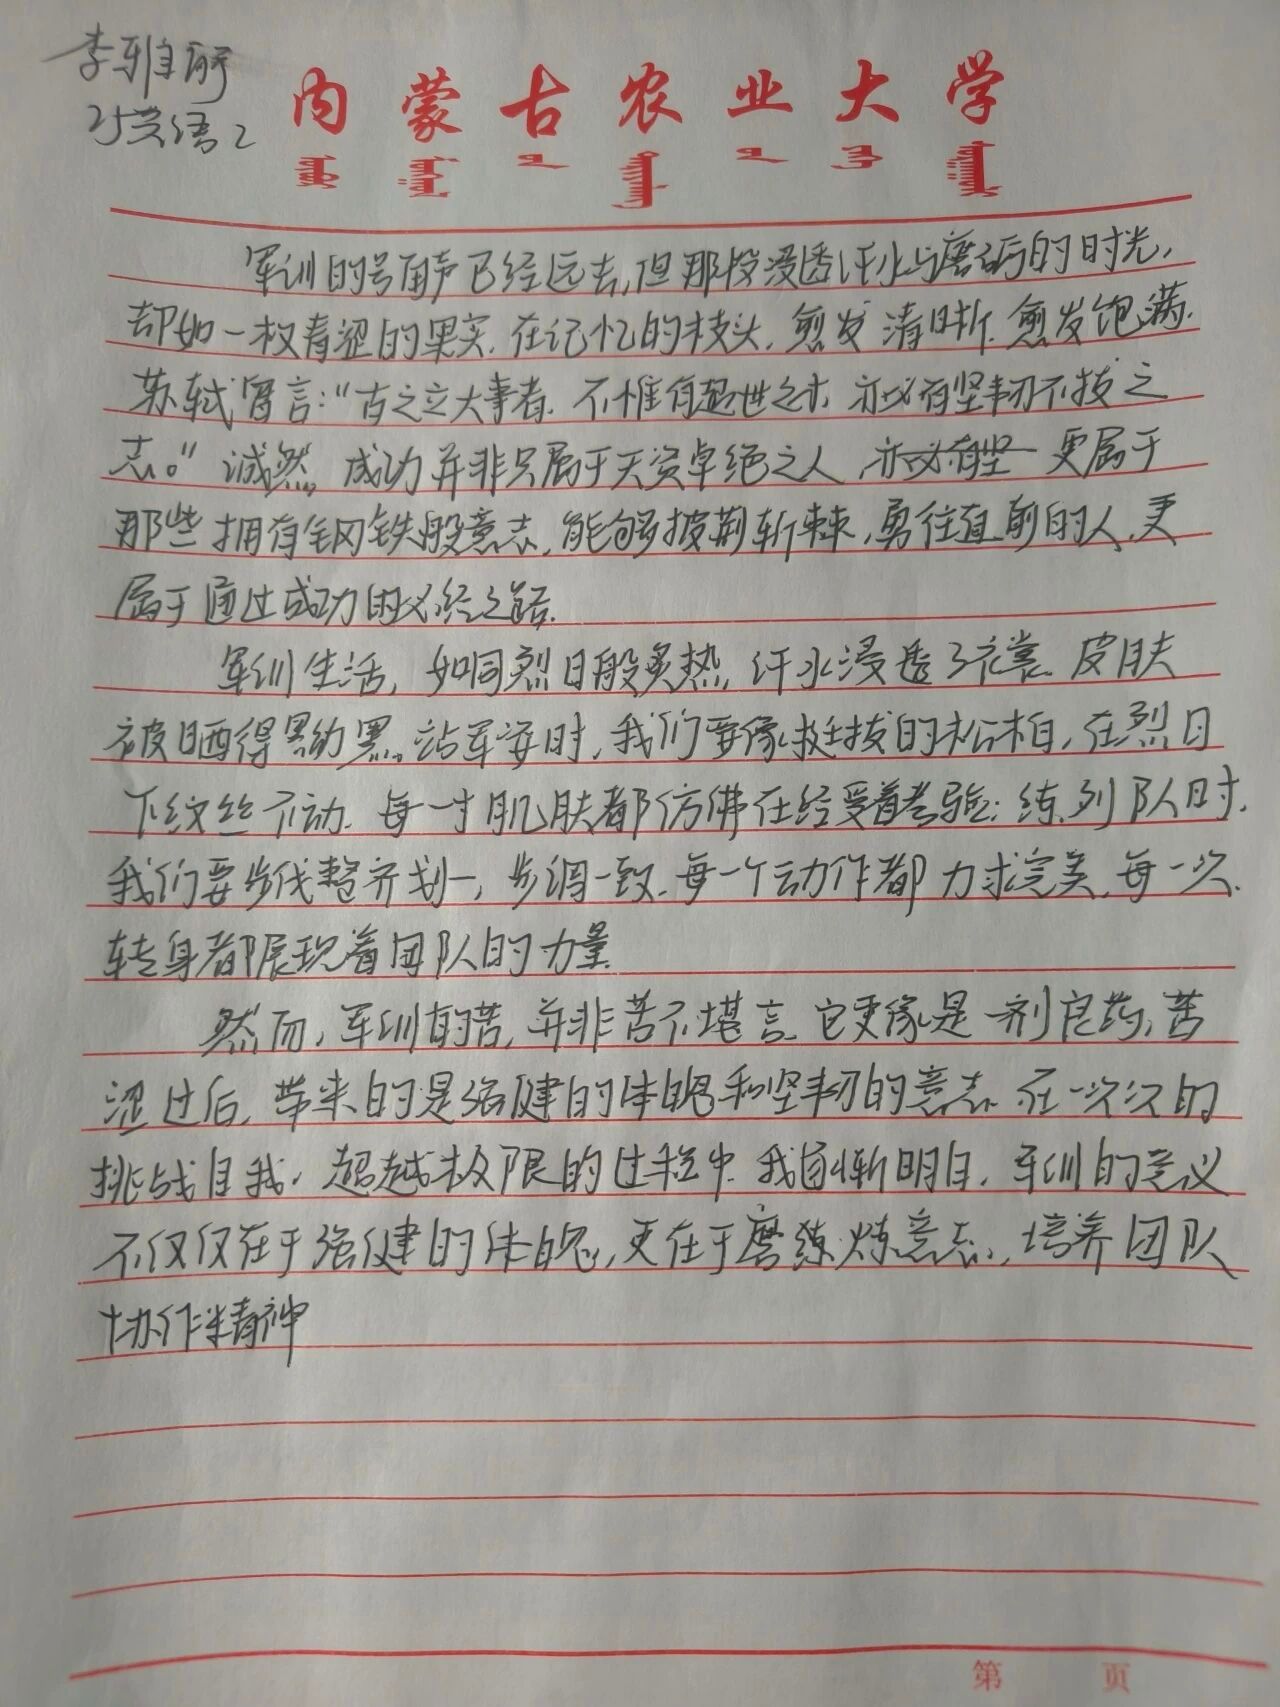 李雅
英语2
内蒙古农业大学
军训的号角声已经远去,但那段浸透汗水与磨砺的时光,
却如一枚青涩的果实.在记忆的枝头,愈发清晰.愈发饱满.
苏轼曾言:"古之立大事者.不惟有超世之才.亦必有坚韧不拔之
志。"诚然,成功并非只属于天资卓绝之人,亦必有坚 更属于
那些拥有钢铁般意志,能够披荆斩棘,勇往直前的人,更
属于通过成功的必经之路.
军训生活,如同烈日般炙热,汗水浸透了衣裳.皮肤
被晒得黝黑.站军姿时,我们要像挺拔的松柏,在烈日
下纹丝不动.每一寸肌肤都仿佛在经受着考验;练列队时.
我们要步伐整齐划一,步调一致.每一个动作都力求完美,每一次
转身都展现着团队的力量.
然而,军训的苦,并非苦不堪言.它更像是一剂良药,苦
涩过后,带来的是强健的体魄和坚韧的意志.在一次次的
挑战自我,超越极限的过程中.我渐明白,军训的意义
不仅仅在于强健的体魄,更在于磨练炼意志,培养团队
协作精神
第 页